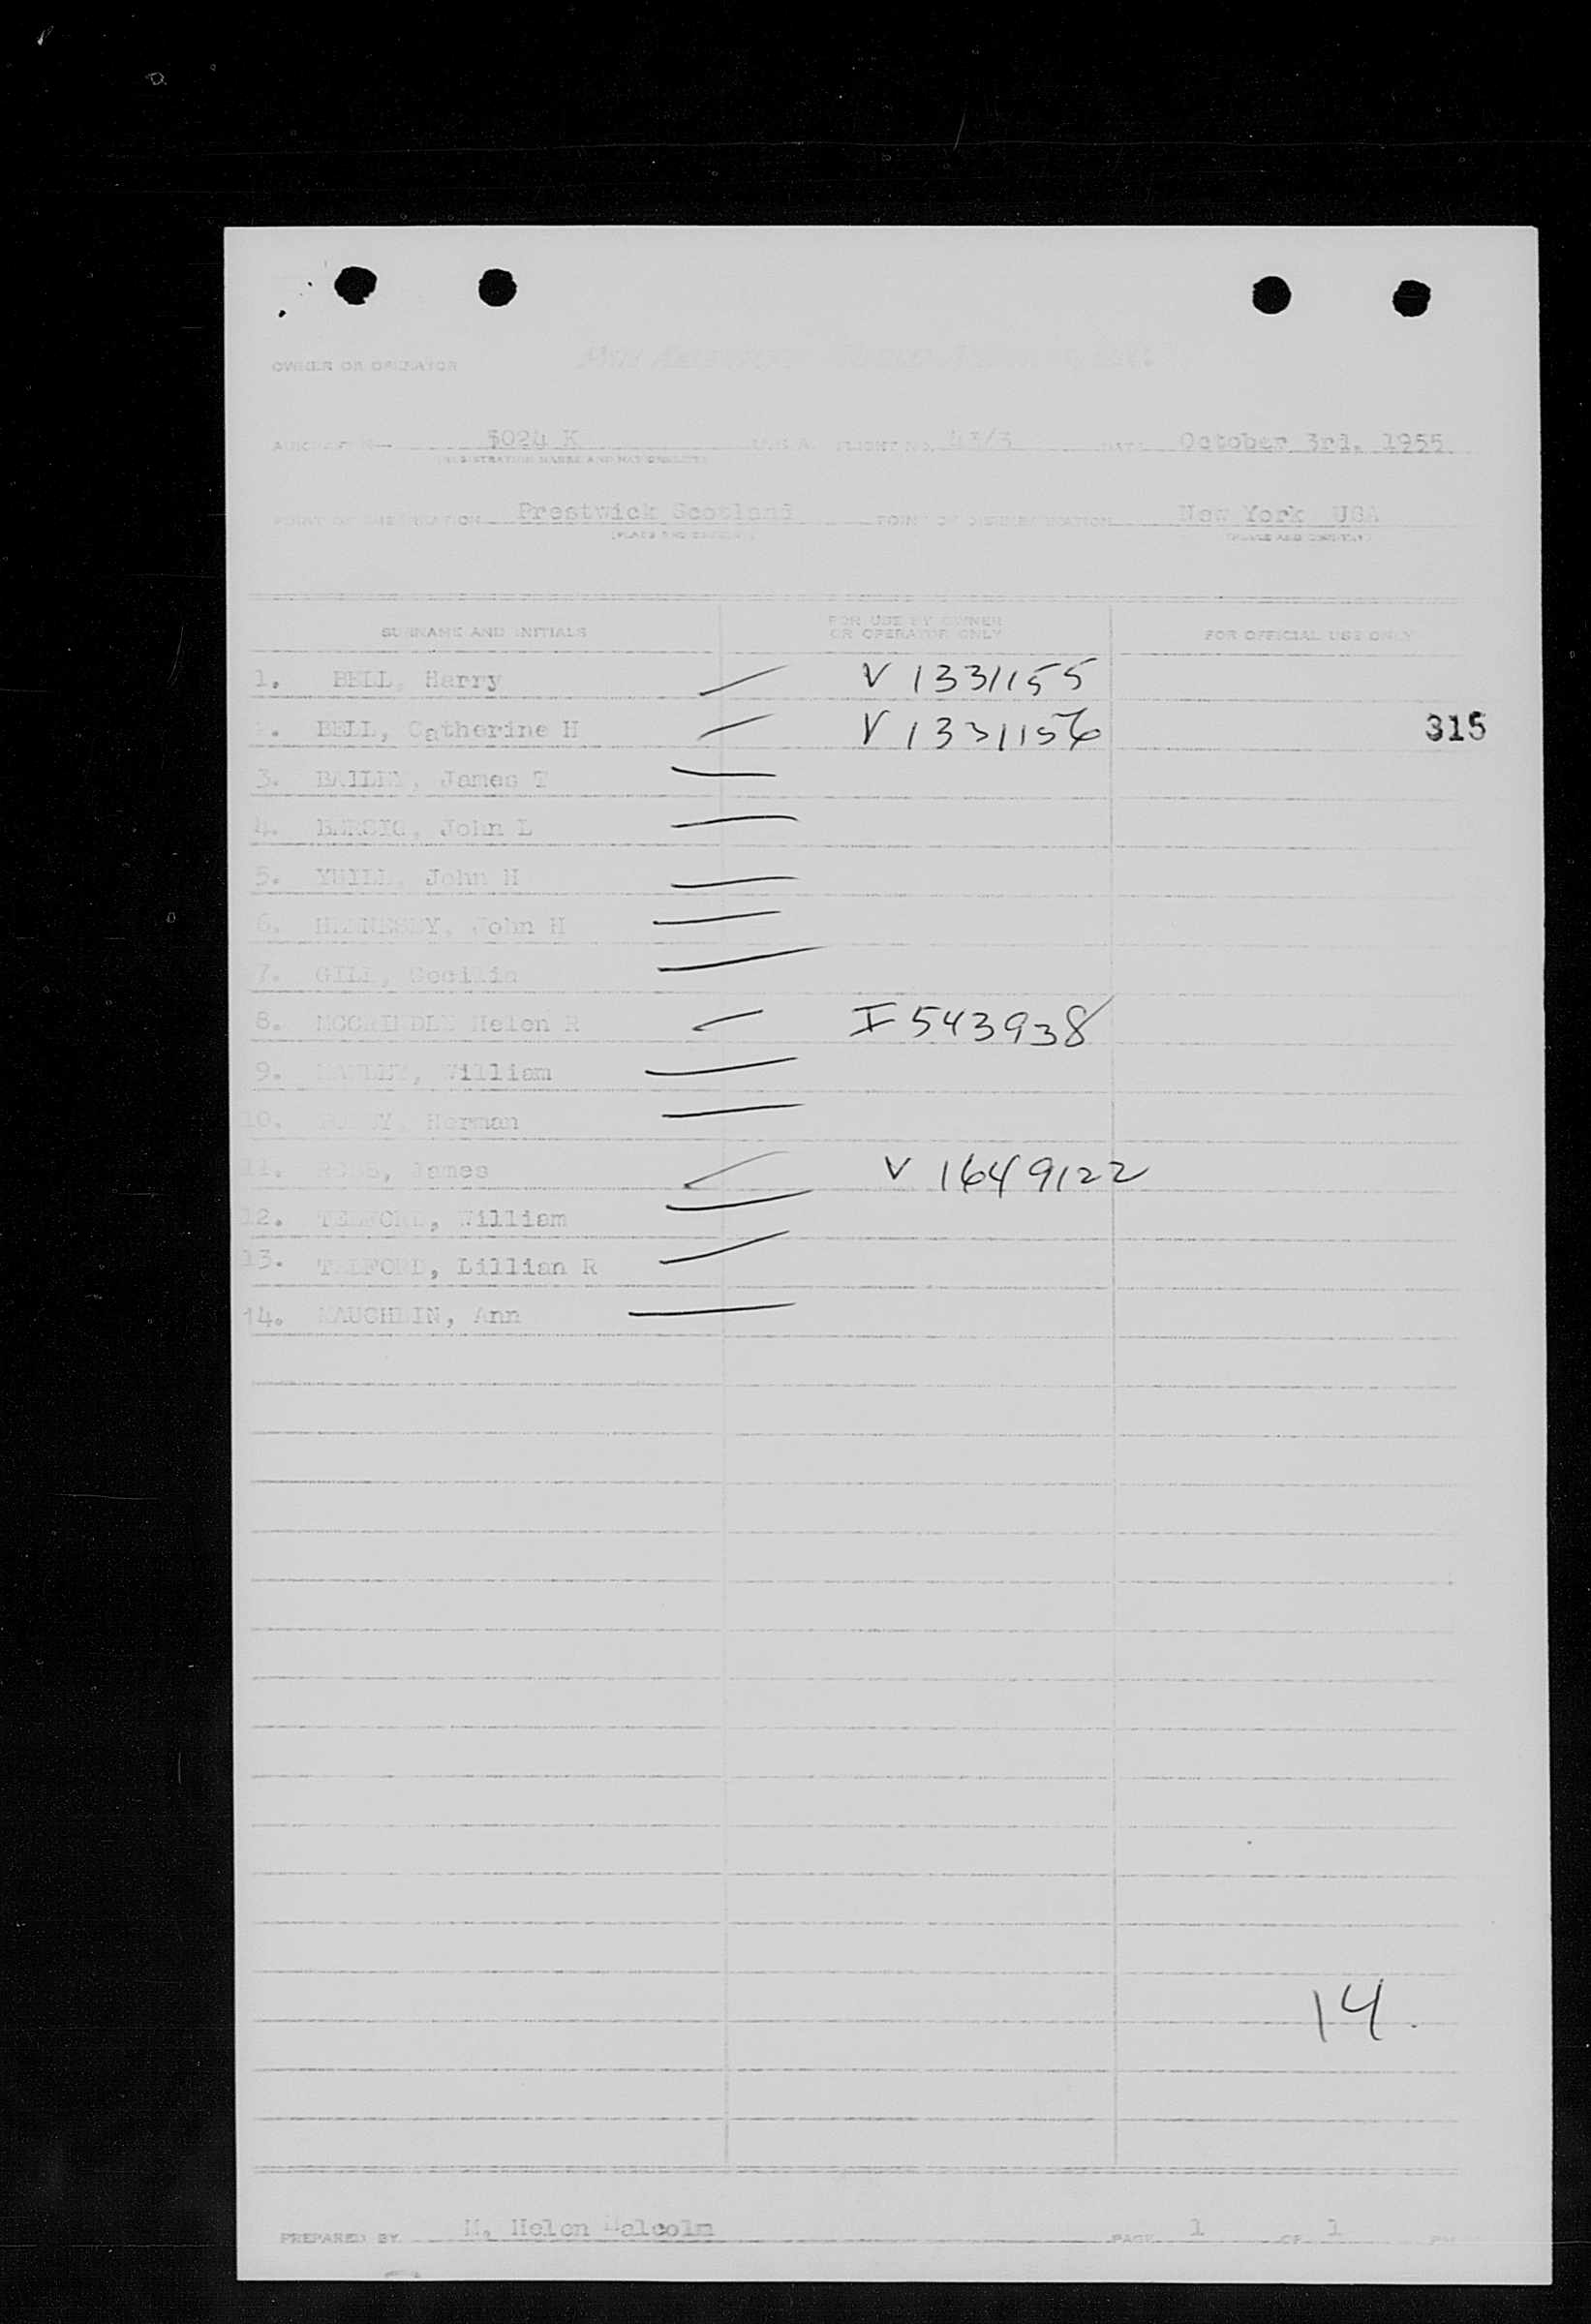 OWNER OR OPERATOR PAN AMERICAN WORLD AIRWAYS, INC.
AIRCRAFT 5024 K U.S.A. FLIGHT NO. 43/3 DATE October 3rd, 1955
(REGISTRATION MARKS AND NATIONALITY)
POINT OF EMBARKATION Prestwick Scotland POINT OF DISEMBARKATION New York USA
(PLACE AND COUNTRY) (PLACE AND COUNTRY)
SURNAME AND INITIALS FOR USE BY OWNER OR OPERATOR ONLY FOR OFFICIAL USE ONLY
1. BELL, Harry V 1331155
BELL, Catherine H V 1331156 315
3. BAILEY, James T
4. John L
5. YUILL, John H
6. John H
7. GILL, Cecilia
8. MCCRINDLE Helen R I 543938
9. William
10. Herman
11. James V 1649122
12. TELFORD, William
13. TELFORD, Lillian R
14. Ann
14.
PREPARED BY M. Helen Malcolm PAGE 1 OF 1